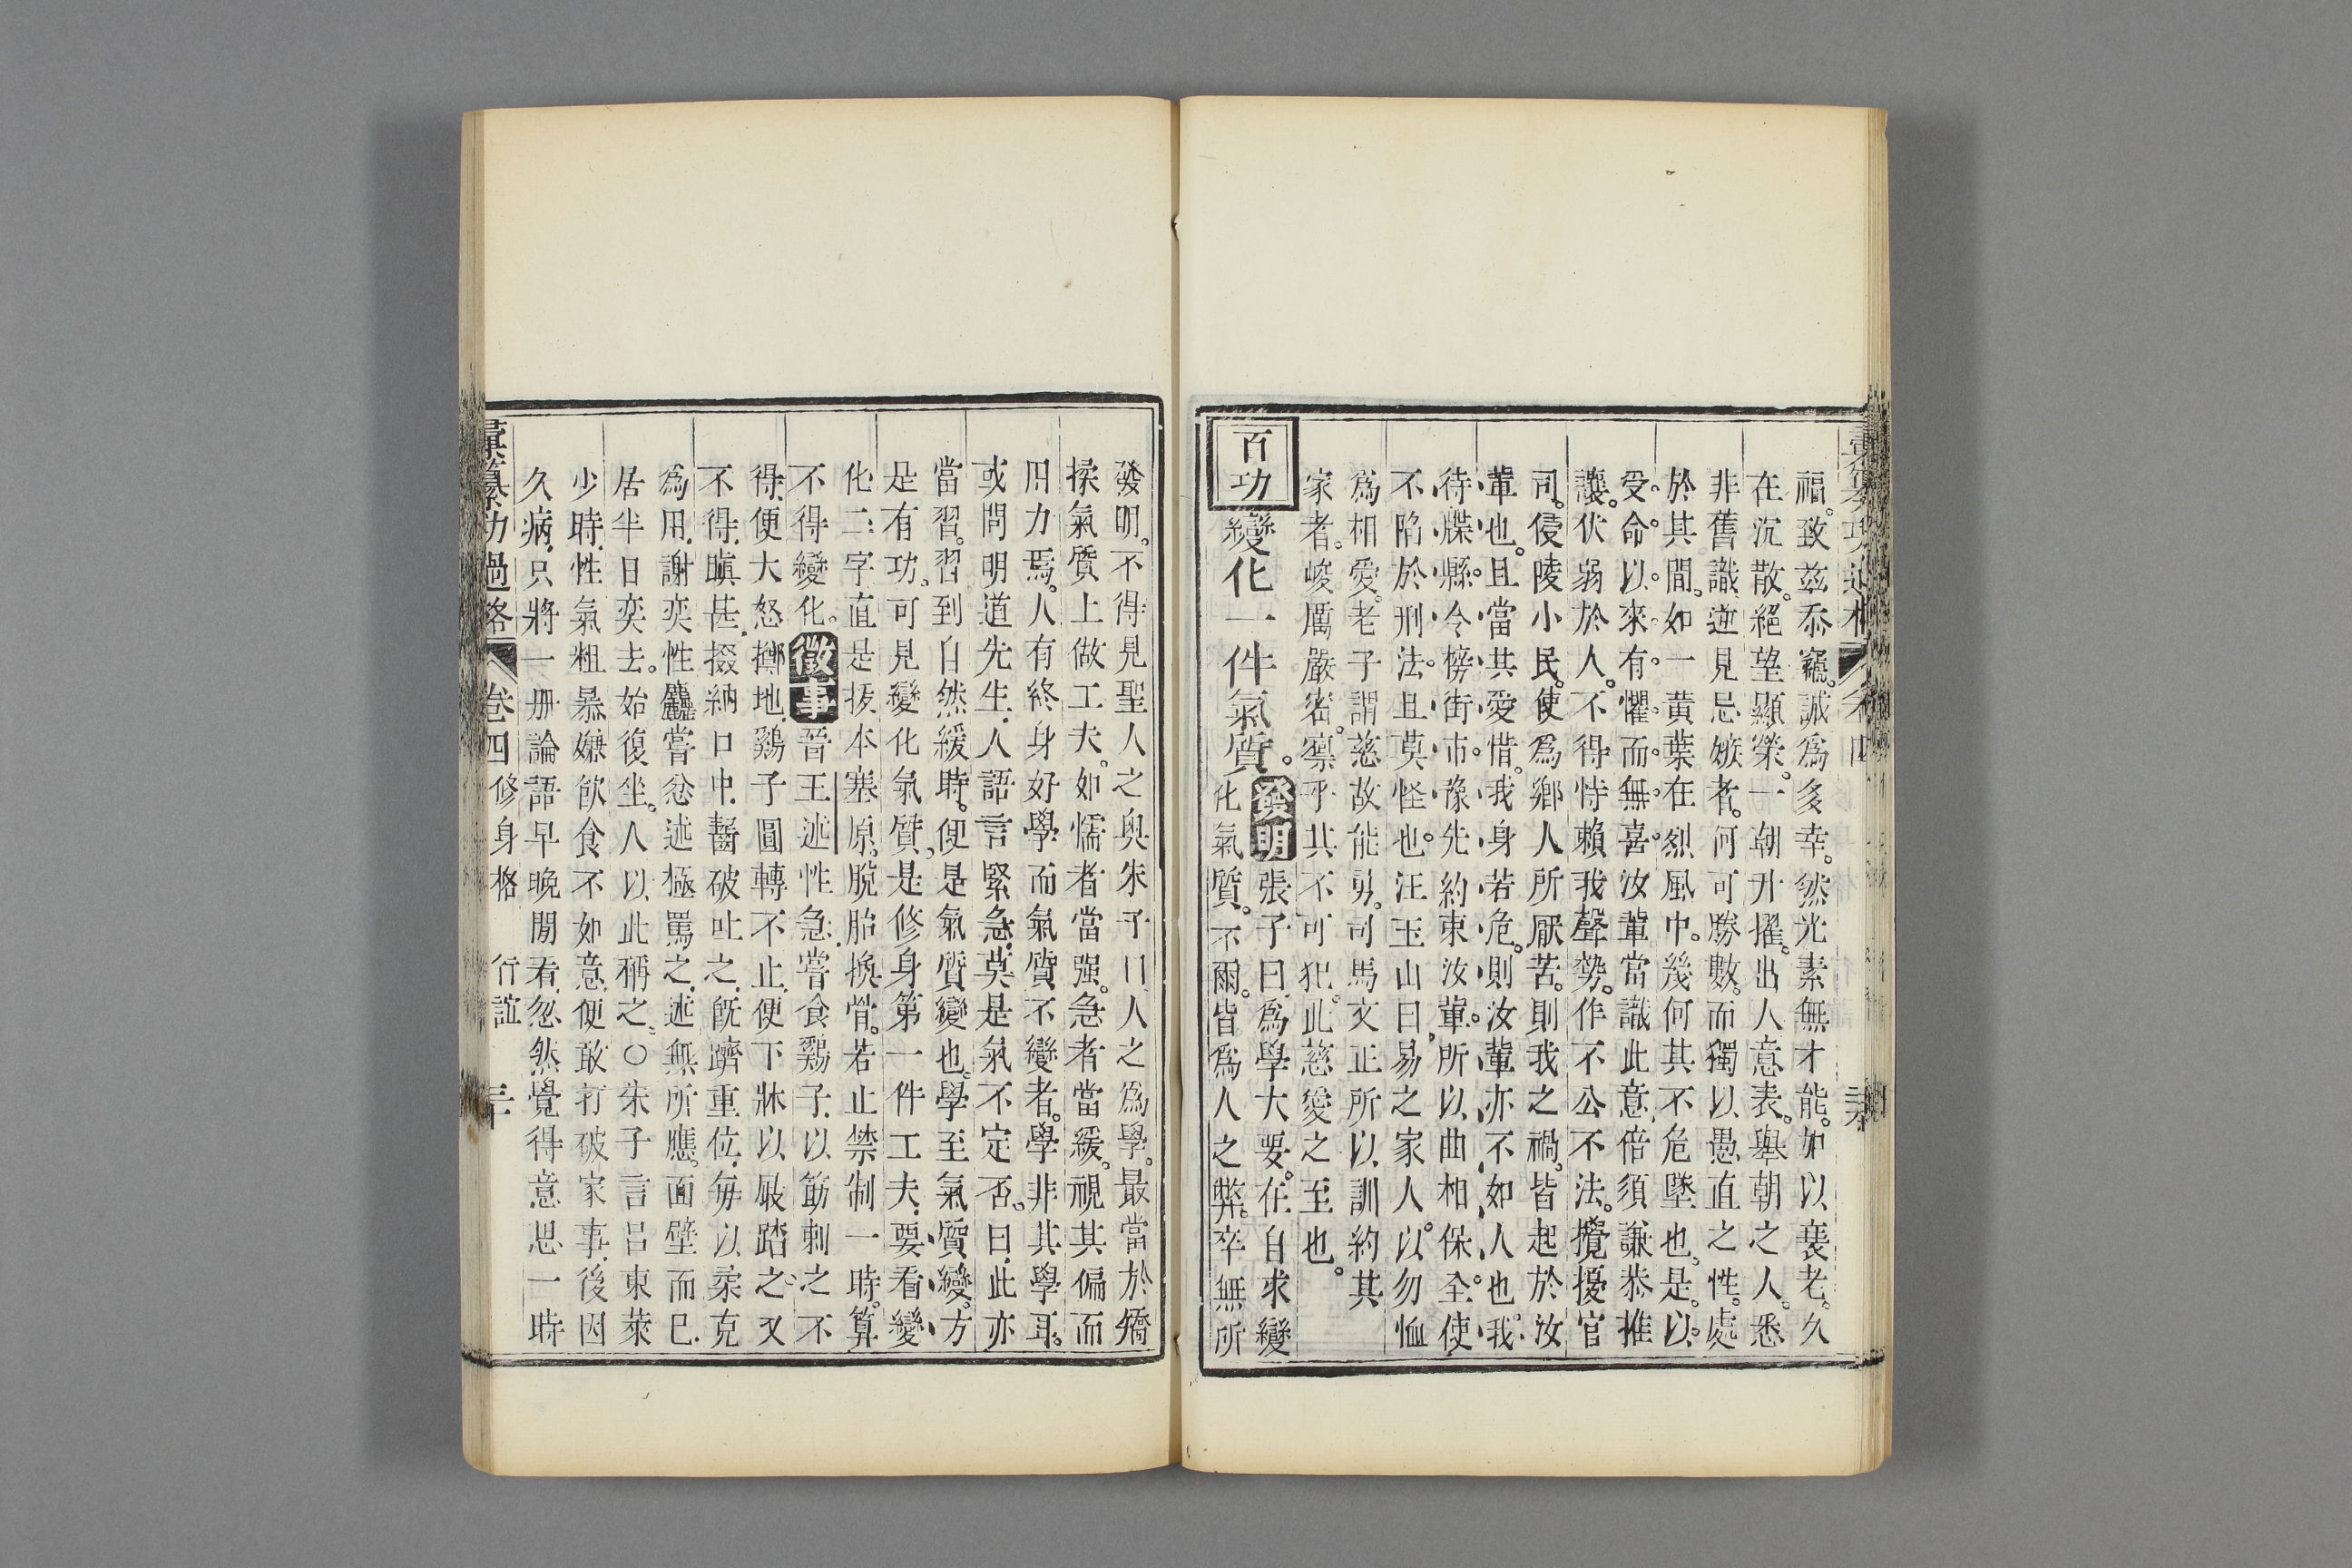 福。致茲忝竊。誠爲多幸。然光素無才能。如以衰老。久
在沉散。絕望顯榮。一朝升擢。出人意表。舉朝之人。悉
非舊識。逆見忌嫉者。何可勝數。而獨以愚直之性。處
於其間。如一黃葉在烈風中。幾何其不危墜也。是。以。
受。命。以。來。有。懼。而。無。喜。汝輩當識此意。倍須謙恭推
讓。伏弱於人。不得恃賴我聲勢。作不公不法。攪擾官
司。侵陵小民。使爲鄉人所厭苦。則我之禍。皆起於汝
輩也。且當其愛惜。我身若危。則汝輩亦不如人也。我
待牒縣令榜街市。豫先約束汝輩。所以曲相保全。使
不陷於刑法。且莫怪也。汪玉山曰。易之家人。以勿恤
爲相愛。老子謂慈故能勇。司馬文正所以訓約其
家者。峻厲嚴密。凛乎其不可犯。此慈愛之至也。
百功 變化一件氣質。 發明 張子曰。爲學大要。在自求變
化氣質。不爾。皆爲人之弊。卒無所
發明。不得見聖人之奥朱子曰人之爲學。最當於矯
揉氣質上做工夫。如懦者當强。急者當緩。視其偏而
用力焉。人有終身好學而氣質不變者。學非其學耳。
或問明道先生。人語言緊急。莫是氣不定否。曰。此亦
當習。習到自然緩時。便是氣質變也。學至氣質變。方
是有功。可見變化氣質。是修身第一件工夫。要看變
化二字。直是拔本塞原。脫胎換骨。若止禁制一時。算
不得變化。 徵事 晉王述性急。嘗食鷄子。以筯刺之不
得。便大怒擲地。鷄子圓轉不止。便下牀以屐踏之。又
不得。瞋甚。掇納口中。齧破吐之。旣躋重位。每以柔克
爲用。謝奕性麤。嘗忿述極罵之。述無所應。面壁而已。
居半日奕去。始復坐。人以此稱之。○朱子言呂東萊
少時。性氣粗暴。嫌飲食不如意。便敢打破家事。後因
久病。只將一册論語早晚閒看。忽然覺得意思一時
彙纂功過格 卷四 修身格 行誼 三十